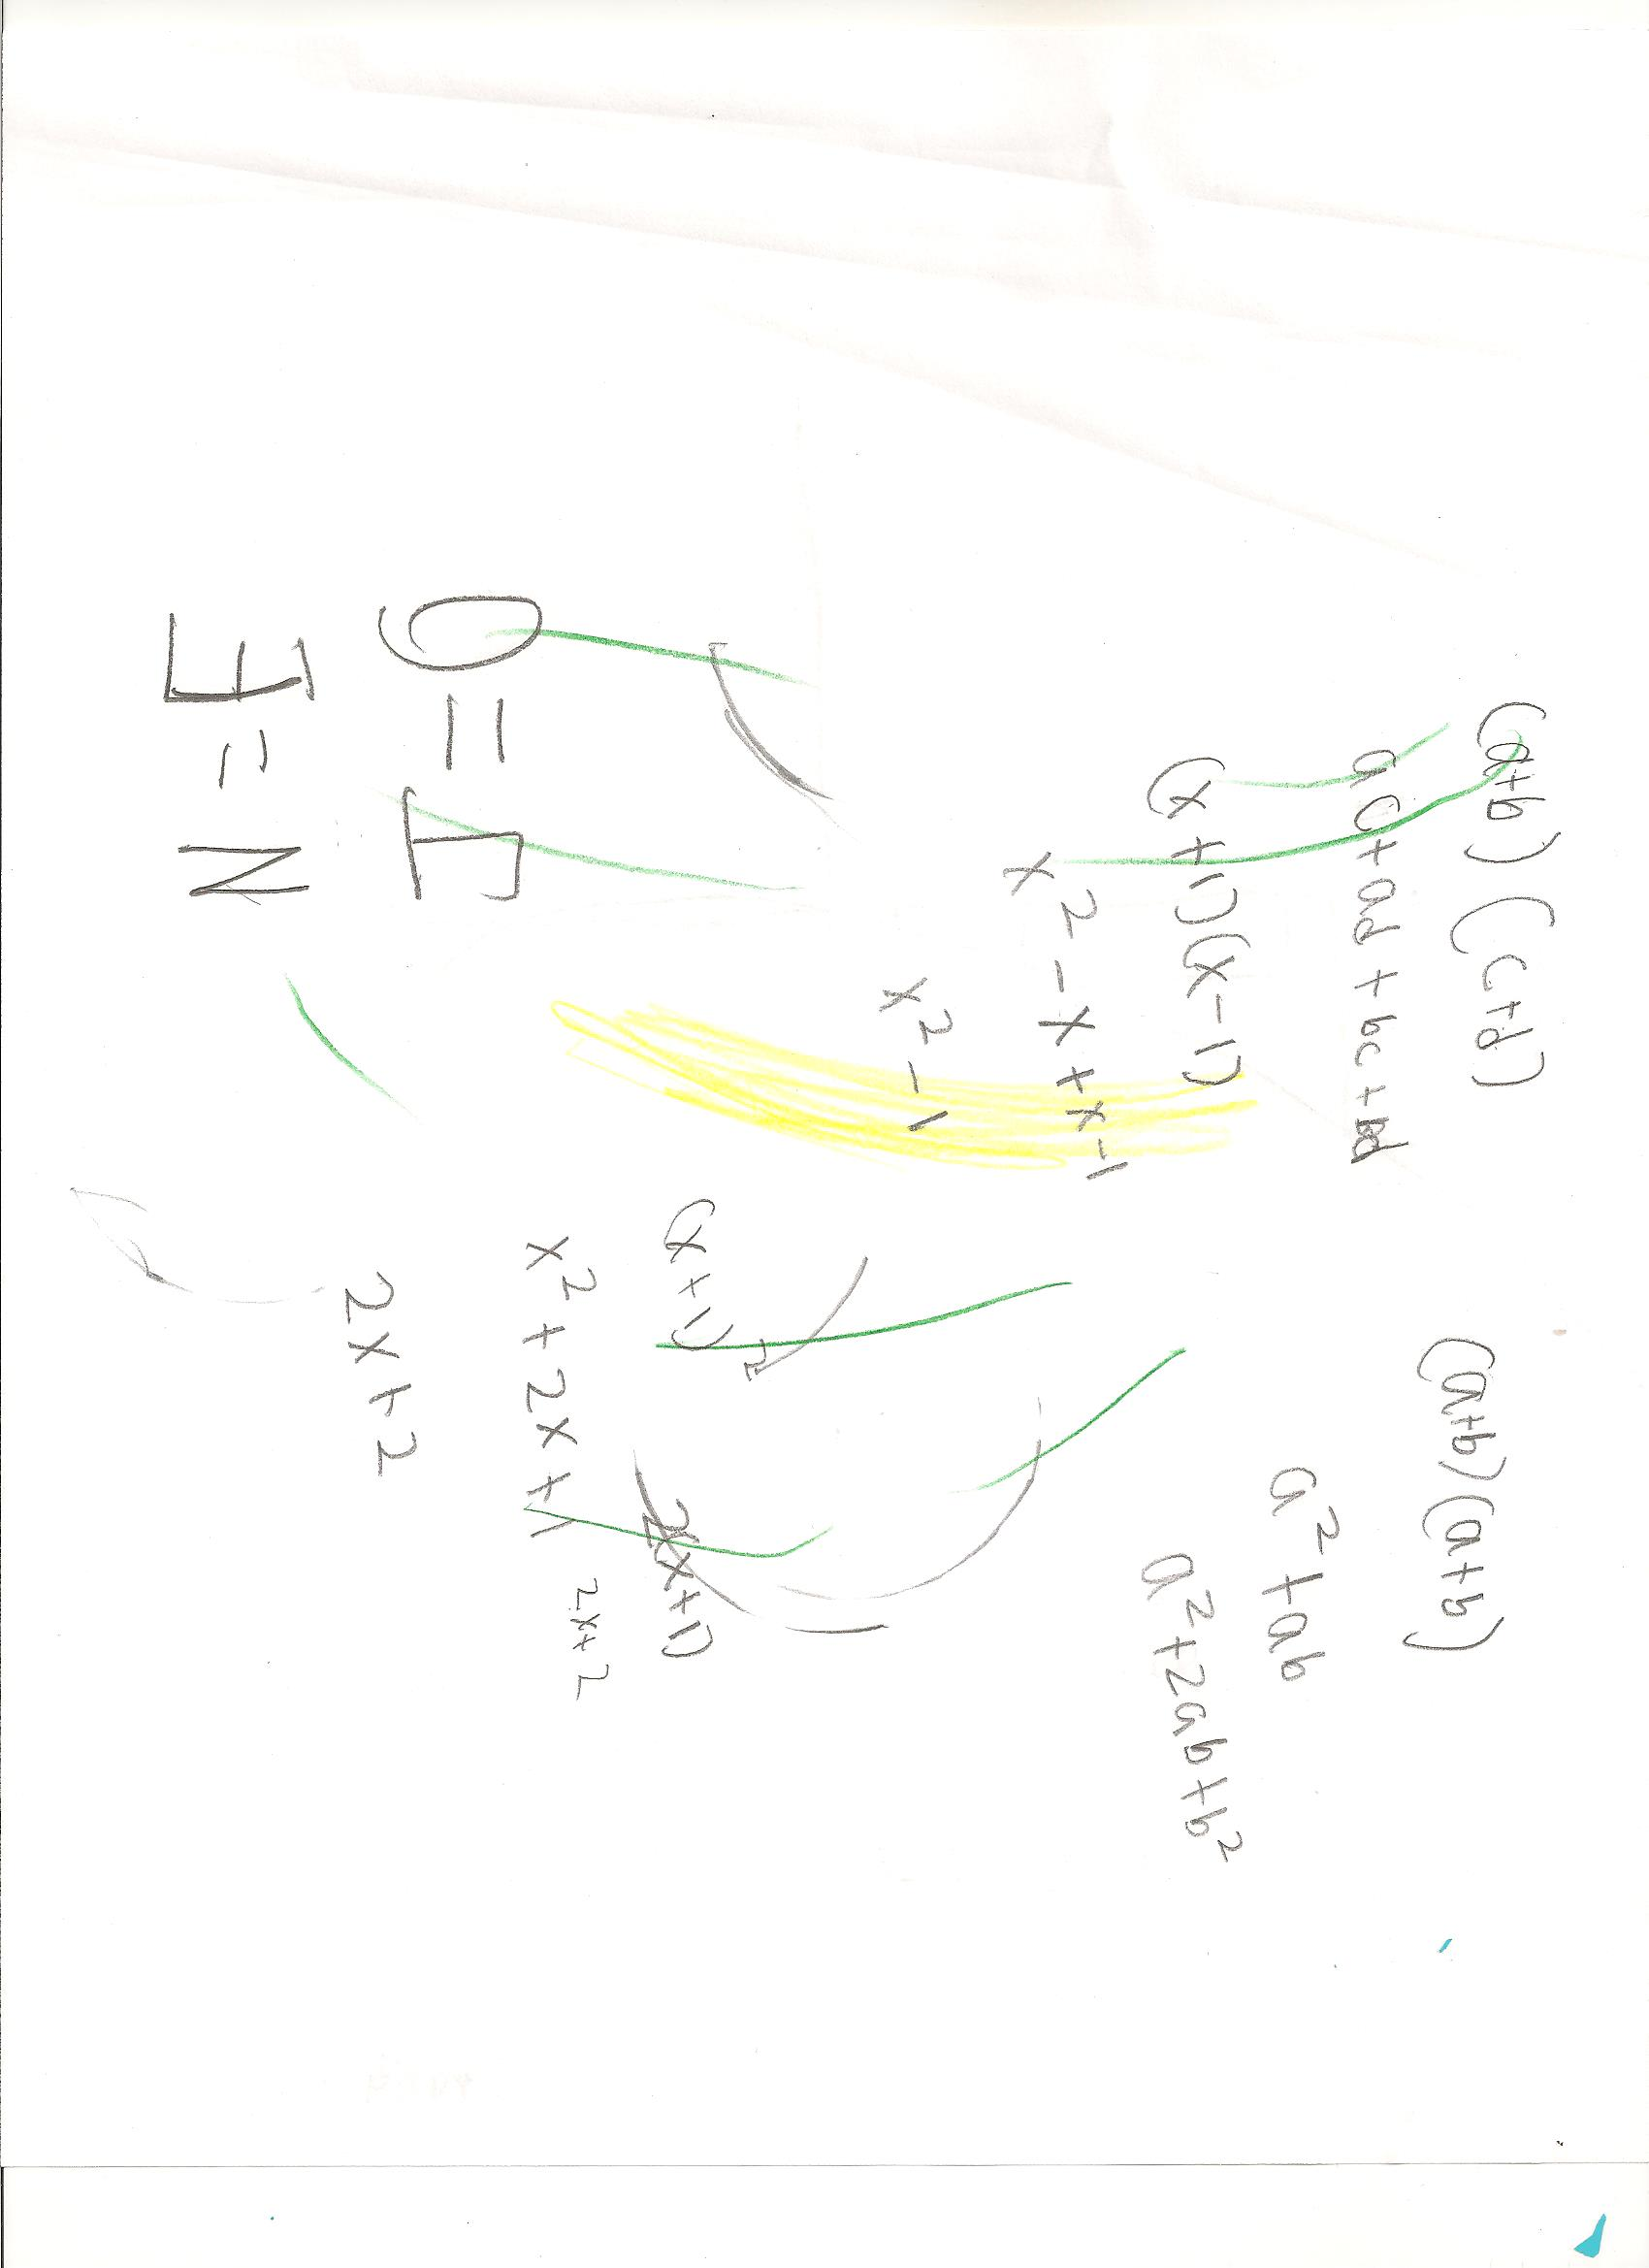 (a+b)(c+d)
ac+ad+bc+bd
(x+1)(x-1)
x²-x+x-1
x²-1
(a+b)(a+b)
a²+ab
a²+2ab+b²
(x+1)²
2(x+1)
x²+2x+1
2x+2
2x+2
Ǝ = N